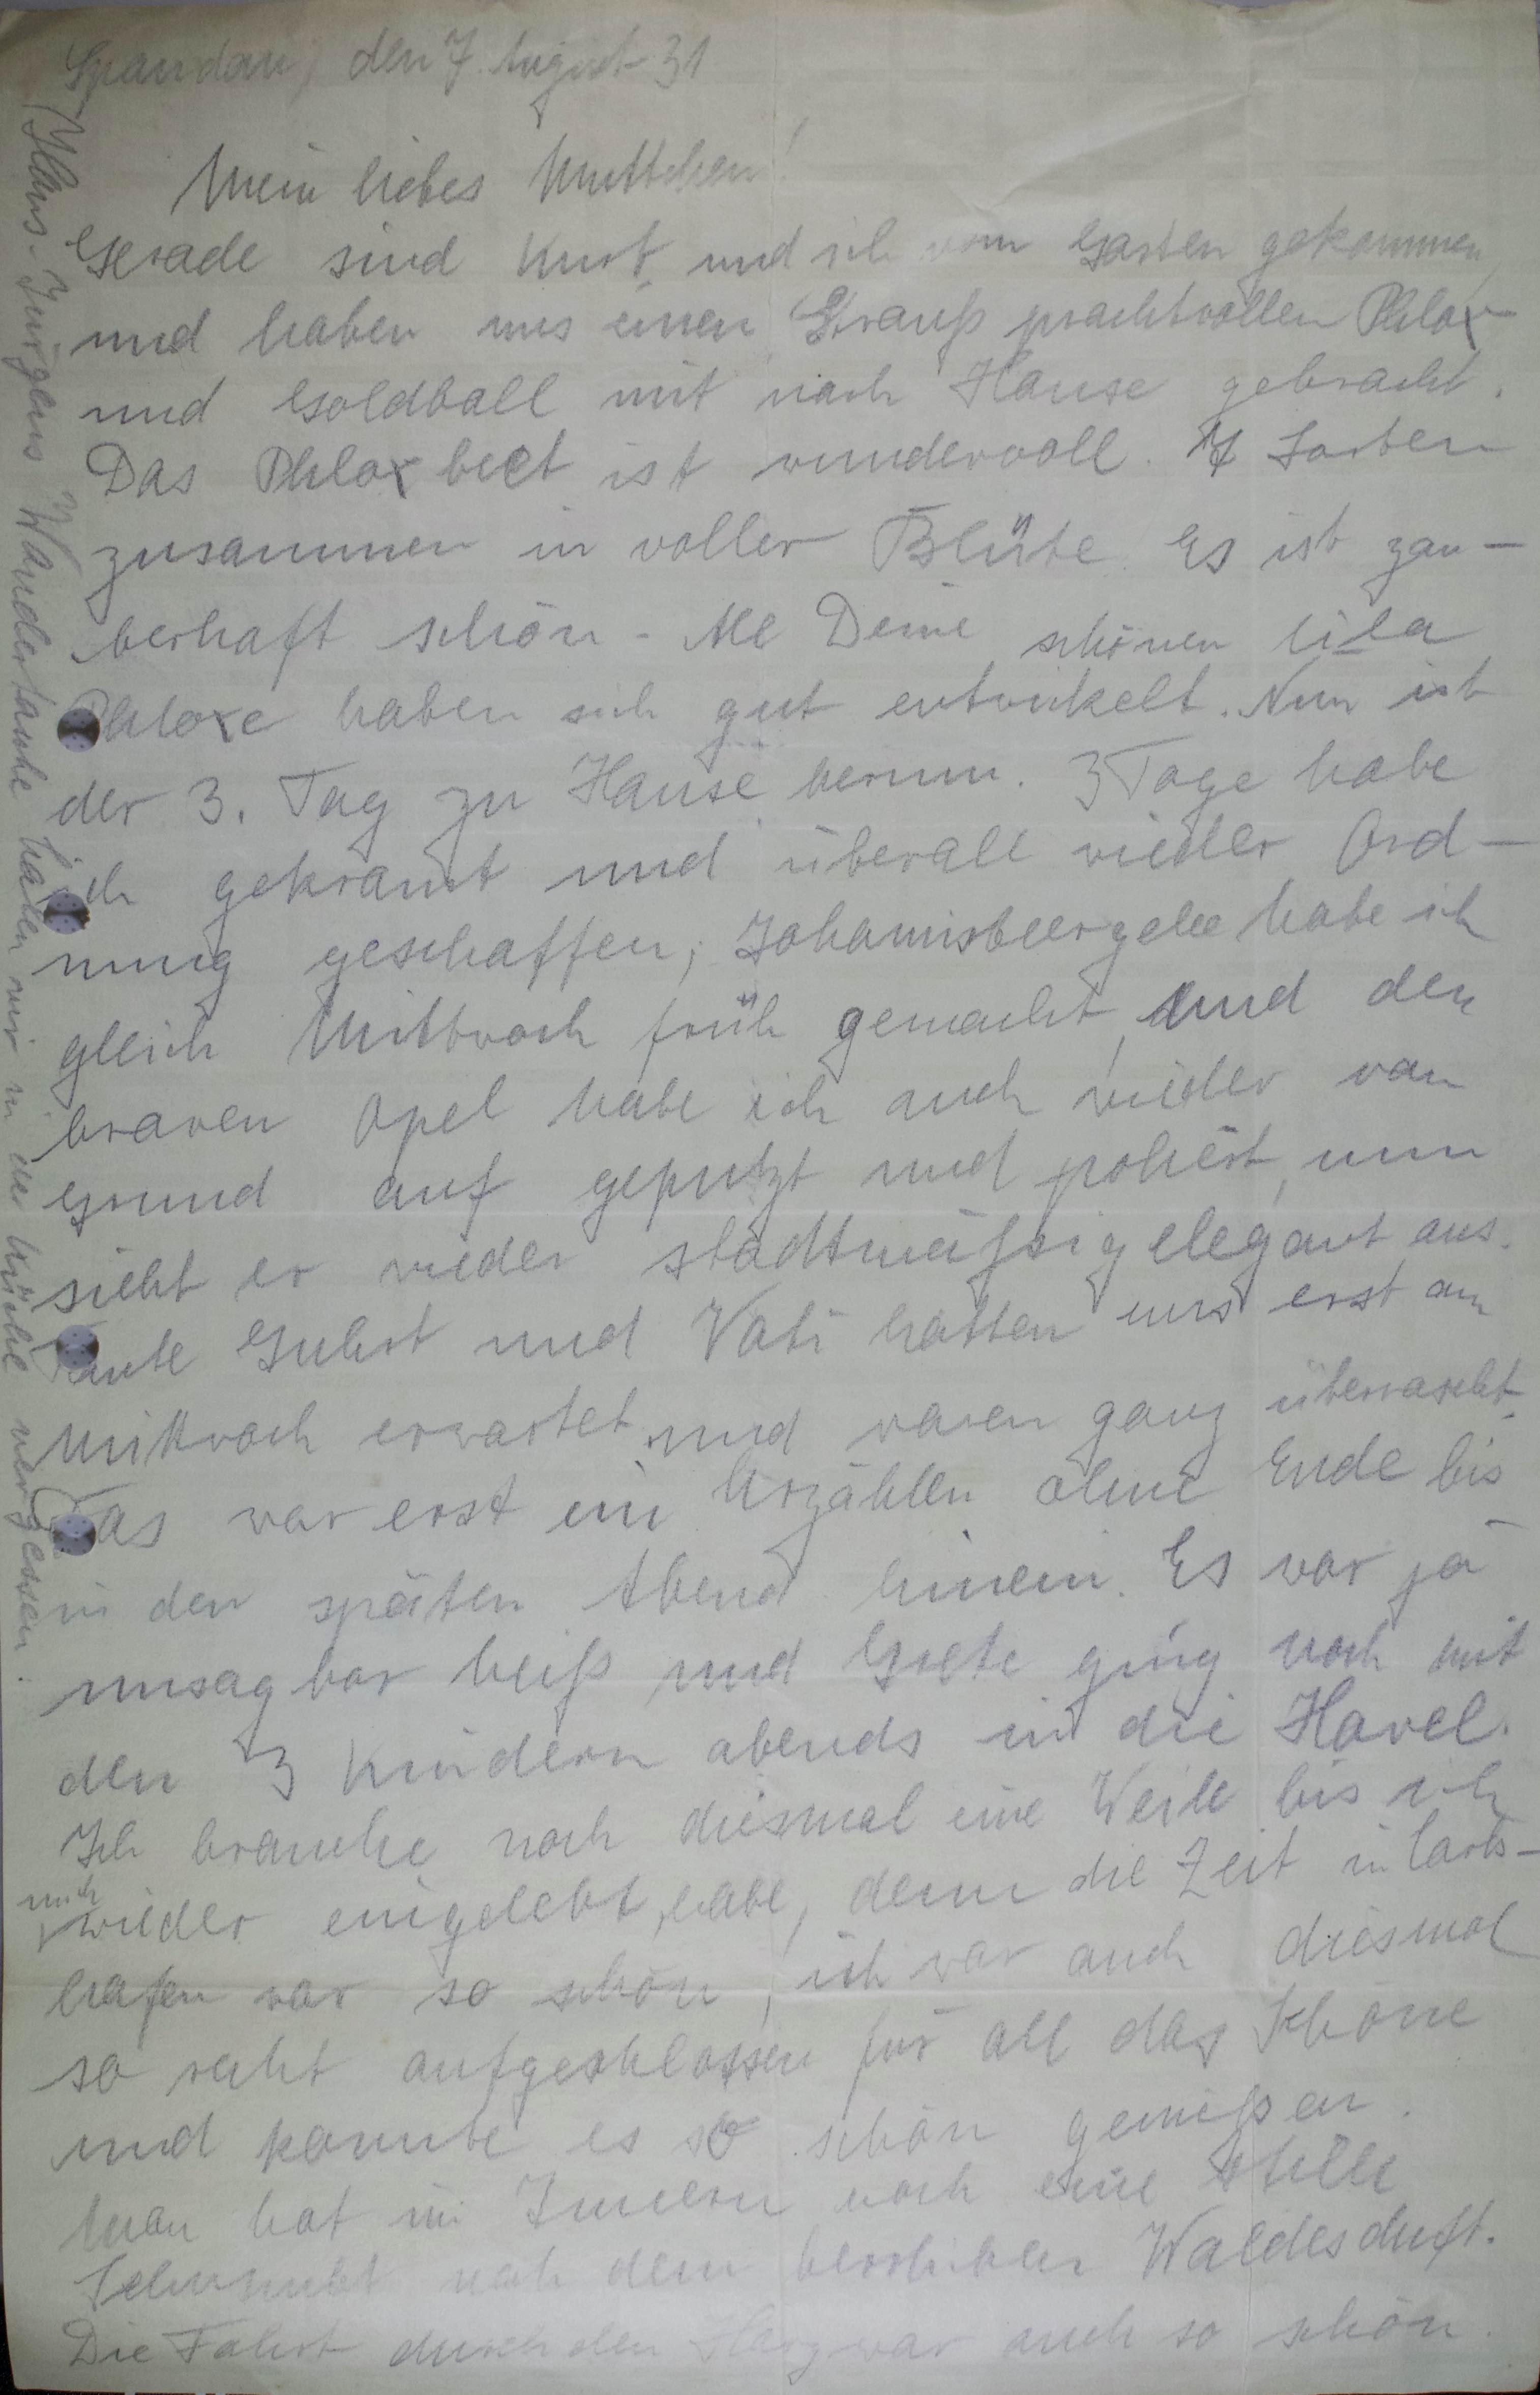 Spandau, den 7. August 31
Mein liebes Muttchen!
Gerade sind Kurt und ich vom Garten gekommen
und haben uns einen Strauß prachtvollen Phlox
und Goldball mit nach Hause gebracht.
Das Phloxbeet ist wundervoll. 7 Sorten
zusammen in voller Blüte. Es ist zau-
berhaft schön. All Deine schönen lila
Phloxe haben sich gut entwickelt. Nun ist
der 3. Tag zu Hause herum. 3 Tage habe
ich gekramt und überall wieder Ord-
nung geschaffen, Johannisbeergelee habe ich
gleich Mittwoch früh gemacht, und den
braven Opel habe ich auch wieder von
Grund auf geputzt und poliert, nun
sieht er wieder stadtmäßig elegant aus.
Tante Guhst und Vati hatten uns erst am
Mittwoch erwartet und waren ganz überrascht.
Das war erst ein Erzählen ohne Ende bis
in den späten Abend hinein. Es war ja
unsagbar heiß und Grete ging noch mit
den 3 Kindern abends in die Havel.
Ich brauche noch diesmal eine Weile bis ich
mich wieder eingelebt habe, denn die Zeit in Carls-
hafen war so schön, ich war auch diesmal
so recht aufgeschlossen für all das Schöne
und konnte es so schön genießen.
Man hat im Innern noch eine stille
Sehnsucht nach dem herrlichen Waldesduft.
Die Fahrt durch den Harz war auch so schön.
Hans-Jürgens Wandertasche haben wir in der Küche vergessen.